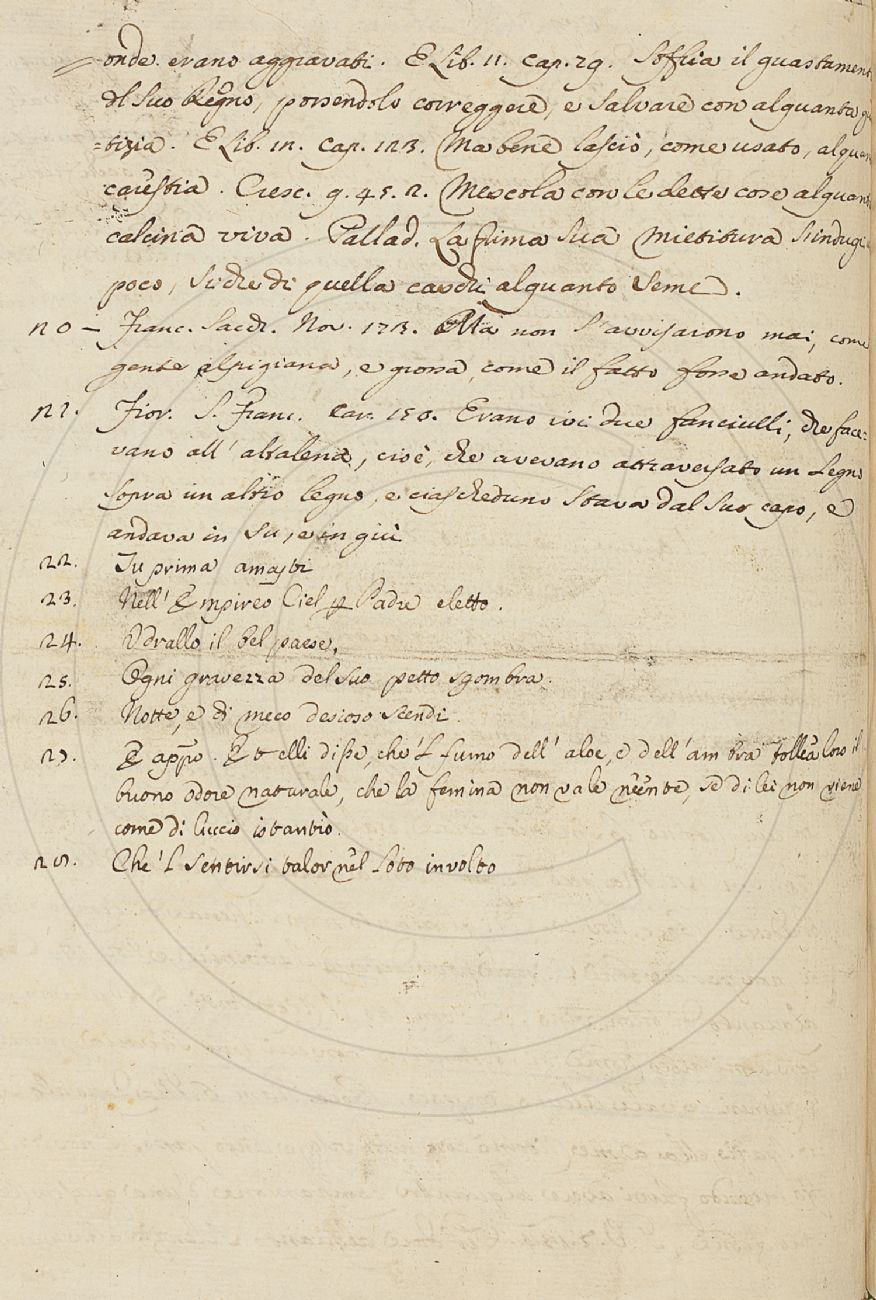 onde erano aggravati. E Lib. 11. Cap. 29. Soffria il guastament
del suo Regno, possendolo correggere, e salvare con alquanta giu
=tizia. E Lib. 12. Cap. 123. Ma bene lasciò, come usato, alquan
carestia. Cresc. 9. 45. 2. Mescola con le dette cose alquant
calcina viva. Pallad. La prima sua mietitura s'indugi
poco, sicche di quella caschi alquanto seme.
20 – Franc. Sacch. Nov. 173. Ma non s'avvisarono mai, come
gente alpigiana, e grossa, come il fatto fosse andato.
21. Fior. S. Franc. Cap. 150. Erano ivi due fanciulli, che face=
vano all' altalena, cioè, che avevano attraversato un legno
sopra un altro legno, e ciascheduno stava dal suo capo, e
andava in su, e in giù
22. Tu prima amasti
23. Nell' Empireo Ciel per Padre eletto.
24. Udrallo il bel paese,
25. Ogni gravezza del suo petto sgombra.
26. Notte, e dì meco desioso scendi.
27. E appo. Et elli disse, che 'l fumo dell' aloe, e dell' ambra tollea loro il
buono odore naturale, che la femina non vale neente, se di lei non viene
come di luccio istantìo.
28. Che 'l sentirsi talor nel loto involto